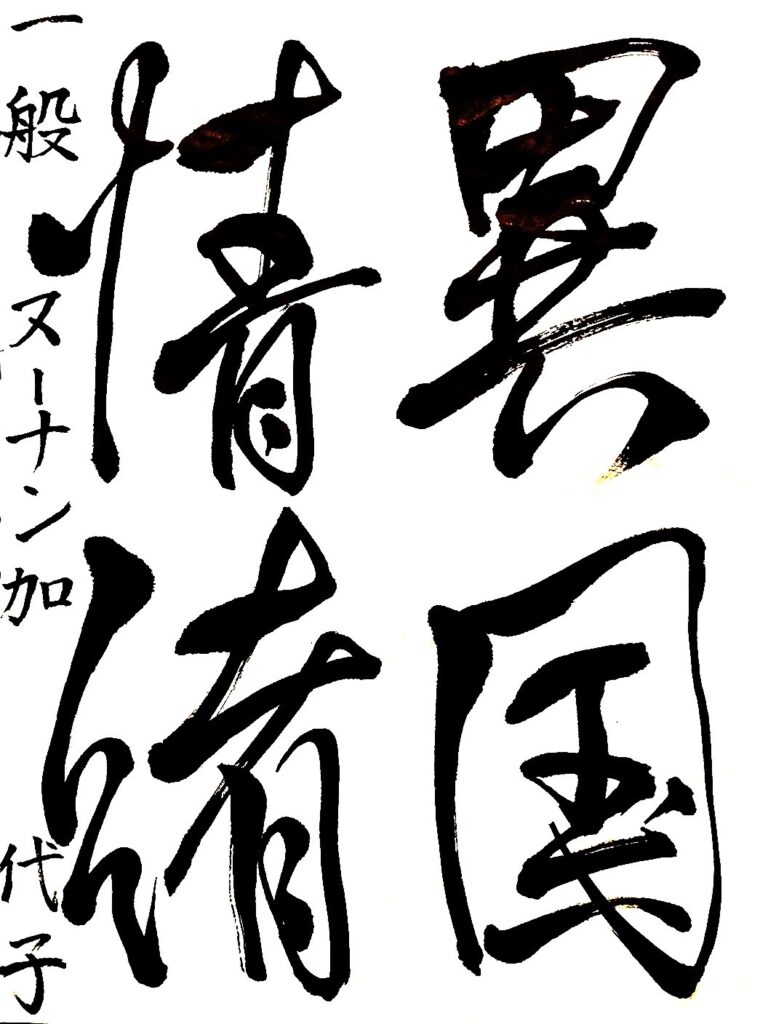 異国
情緒
一般 ヌーナン加代子